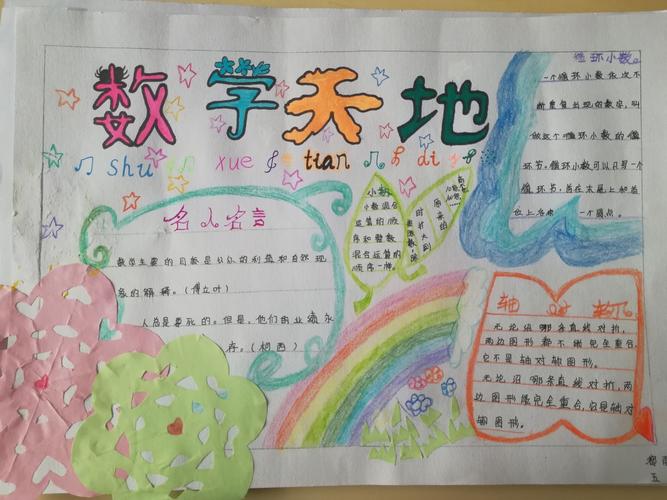 数学天地
shu xue tian di
名人名言
数学主要的目标是公众的利益和自然现
象的解释。(傅立叶)
人总是要死的。但是,他们的业绩永
存。(柯西)
小数
小数混合
运算的顺
序和整数
混合运算的
顺序一样。
循环小数。
一个循环小数依次不
断重复出现的数字,叫
做这个循环小数的循
环节。循环小数可以只写一个
循环节,并在末尾上和首
位上各点一个圆点。
轴对称
无论沿哪条直线对折,
两边图形都不能完全重合,
它不是轴对轴图形。
无论沿哪条直线对折,两
边图形能完全重合,它是轴对
轴图形。
五